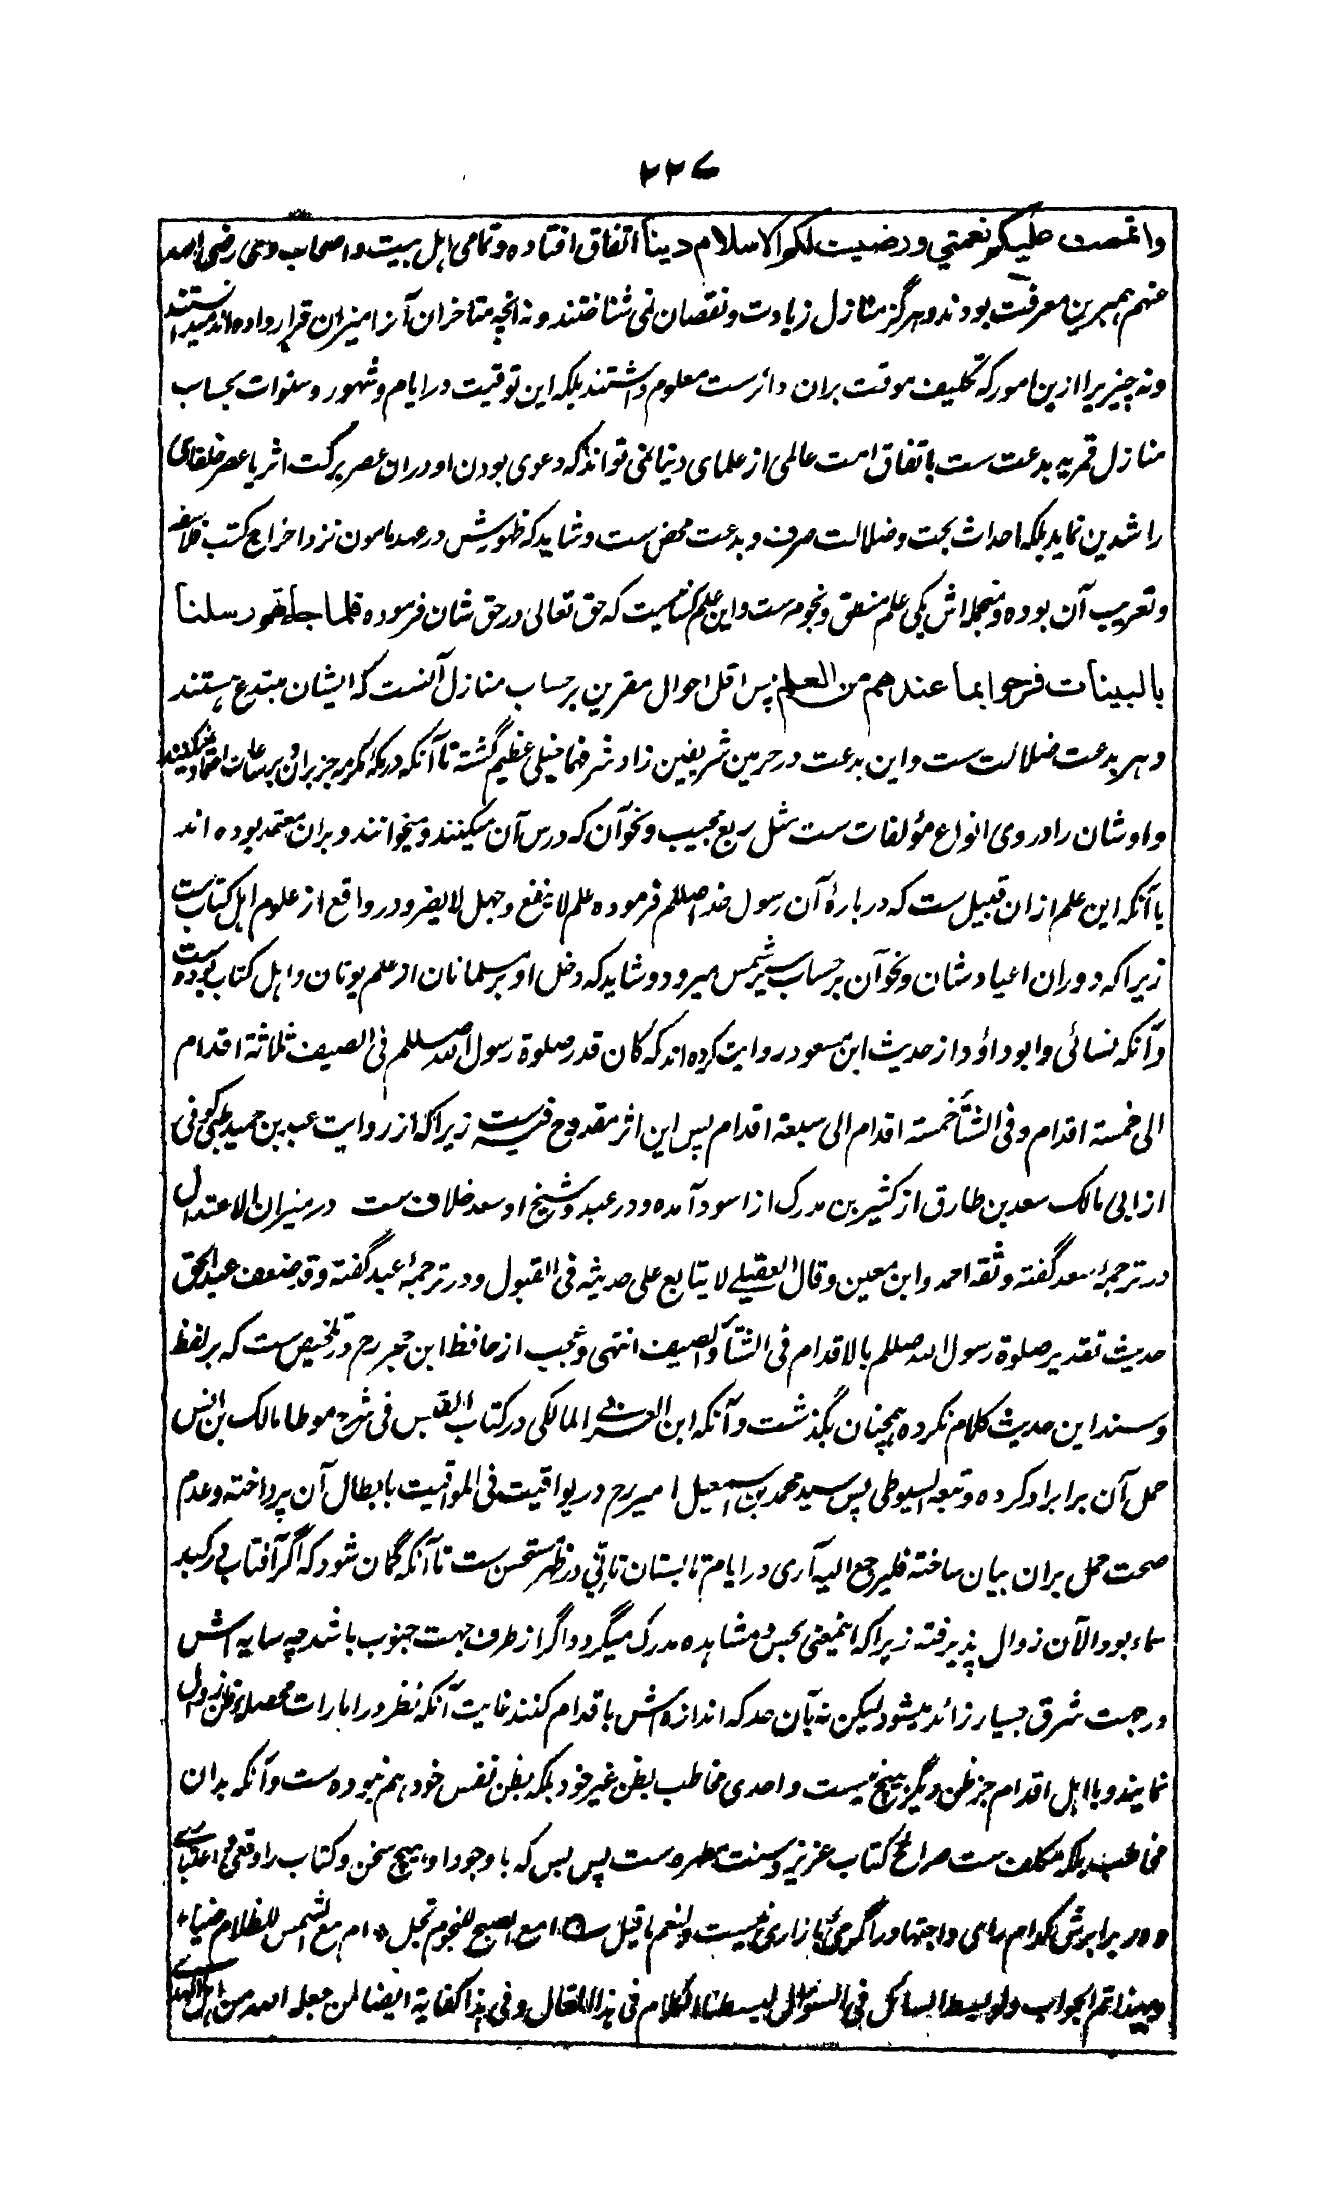 ۲۲۷
واتممت علیکم نعمتی ورضیت لکم الاسلام دینا اتفاق افتاده وتمامی اہل بیت واصحاب وی رضی الله
عنہم ہمبرین معرفت بودند وہرگز منازل زیادت ونقصان نمی شناختند ونہ انچہ متاخران آنرا میزان قرار داده اند میدانستند
ونہ چیزیرا ازین امور کہ تکلیف موقت بران دائرست معلوم داشتند بلکہ این توقیت در ایام وشہور وسنوات بحساب
منازل قمریہ بدعت ست باتفاق امت عالمی از علمای دنیا نمی تواند کہ دعوی بودن او دران عصر برکت اثر یا عصر خلفای
راشدین نماید بلکہ احداث بحت وضلالت صرف وبدعت محض ست وشاید کہ ظہورش در عہد مامون نزد اخراج کتب فلاسفہ
وتعریب آن بوده ومنجملہ اش یکی علم منطق ونجوم ست واین علم کسانیست کہ حق تعالی در حق شان فرموده فلما جاءتهم رسلنا
بالبینات فرحوا بما عندهم من العلم پس اقل احوال مقرین بر حساب منازل آنست کہ ایشان مبتدع ہستند
وہر بدعت ضلالت ست واین بدعت در حرمین شریفین زاد شرفہما خیلی عظیم گشتہ تا آنکہ در مکہ مکرمہ جز بران وبر ساعات اعتماد نمیکنند
واوشان را در وی انواع مؤلفات ست مثل ربع مجیب ونحو آن کہ درس آن میکنند ومیخوانند وبران معتمد بوده اند
با آنکہ این علم ازان قبیل ست کہ درباره آن رسول خدا صللم فرموده علم لا ینفع وجہل لا یضر ودر واقع از علوم اہل کتاب ست
زیرا کہ دوران اعیاد شان ونحو آن بر حساب سیر شمس میرود وشاید کہ دخل او بر مسلمانان از علم یونان واہل کتاب بوده ست
وآنکہ نسائی وابو داؤد از حدیث ابن مسعود روایت کرده اند کہ کان قدر صلوة رسول الله صللم فی الصیف ثلاثة اقدام
الی خمسة اقدام وفی الشتاء خمسة اقدام الی سبعة اقدام پس این اثر مقدوح فیہ ست زیرا کہ از روایت عبیدة بن حمید ضبی کوفی
از ابی مالک سعد بن طارق از کثیر بن مدرک از اسود آمده ودر عبیده وشیخ او سعد خلاف ست در میزان الاعتدال
در ترجمۂ سعد گفتہ وثقہ احمد وابن معین وقال العقیلے لا یتابع علی حدیثہ فی القبول ودر ترجمۂ عبیده گفتہ وقد ضعف عبد الحق
حدیث تقدیر صلوة رسول الله صللم بالاقدام فی الشتاء والصیف انتہی وعجب از حافظ ابن حجر رح در تلخیص ست کہ بر لفظ
وسند این حدیث کلام نکرده ہمچنان بگذشت وآنکہ ابن العربی المالکی در کتاب القبس فی شرح موطا مالک بن انس
حمل آن بر ابراد کرده وتبعہ السیوطی پس سید محمد بن اسمعیل امیر رح در یواقیت فی المواقیت بابطال آن پرداختہ وعدم
صحت حمل بران بیان ساختہ فلیرجع الیہ آری در ایام تابستان تانی در ظہر مستحسن ست تا آنکہ گمان شود کہ اگر آفتاب در کبد
سماء بود الآن زوال پذیرفتہ زیرا کہ اینمعنی بحس ومشاہده مدرک میگردد واگر از طرف جہت جنوب باشد چہ سایہ اش
در جہت شرق بسیار زائد میشود لیکن نہ بآن حد کہ اندازه اش باقدام کنند غایت آنکہ نظر در امارات محصلہ ظن زوال
نمایند وبا اہل اقدام جز ظن دیگر ہیچ نیست واحدی مخاطب بظن غیر خود بلکہ بظن نفس خود ہم نبوده ست وآنکہ بدان
مخاطب بلکہ مکلف ست صرائح کتاب عزیز وسنت مطہره ست پس بس کہ با وجود او ہیچ سخن وکتاب را وقعی واعتباری
ودر برابرش کدام رای واجتہاد را گرمی بازاری نیست ولنعم ما قیل امع الصبح للنجوم تجل ام مع الشمس للظلام ضیاء
وبہذا تم الجواب ولو بسط السائل فی السؤال لبسطنا الکلام فی ہذا المقال وفی ہذا کفایة ایضا لمن جعلہ الله من اہل الہدایة